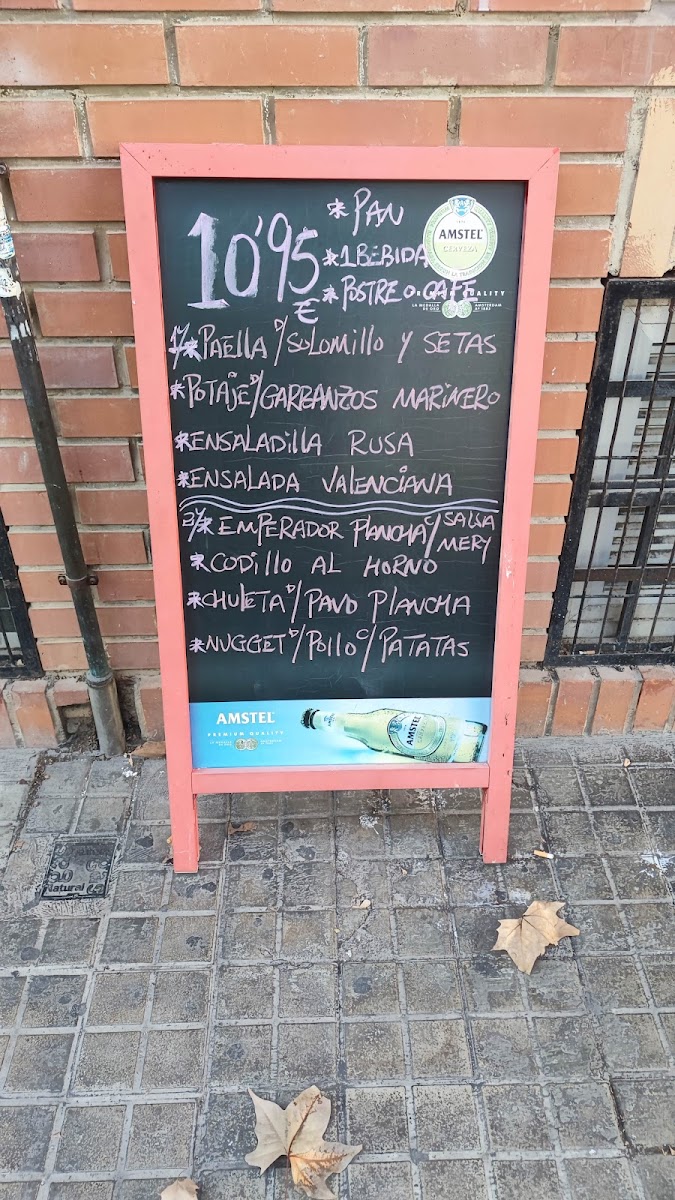 10'95 €
* PAN
* 1 BEBIDA
* POSTRE O CAFE
AMSTEL
CERVEZA
PREMIUM QUALITY
1º/* PAELLA D/SOLOMILLO Y SETAS
* POTAJE D/GARBANZOS MARINERO
* ENSALADILLA RUSA
* ENSALADA VALENCIANA
2º/* EMPERADOR PLANCHA C/SALSA MERY
* CODILLO AL HORNO
* CHULETA D/PAVO PLANCHA
* NUGGET D/POLLO C/PATATAS
AMSTEL
PREMIUM QUALITY
AMSTEL
Natural